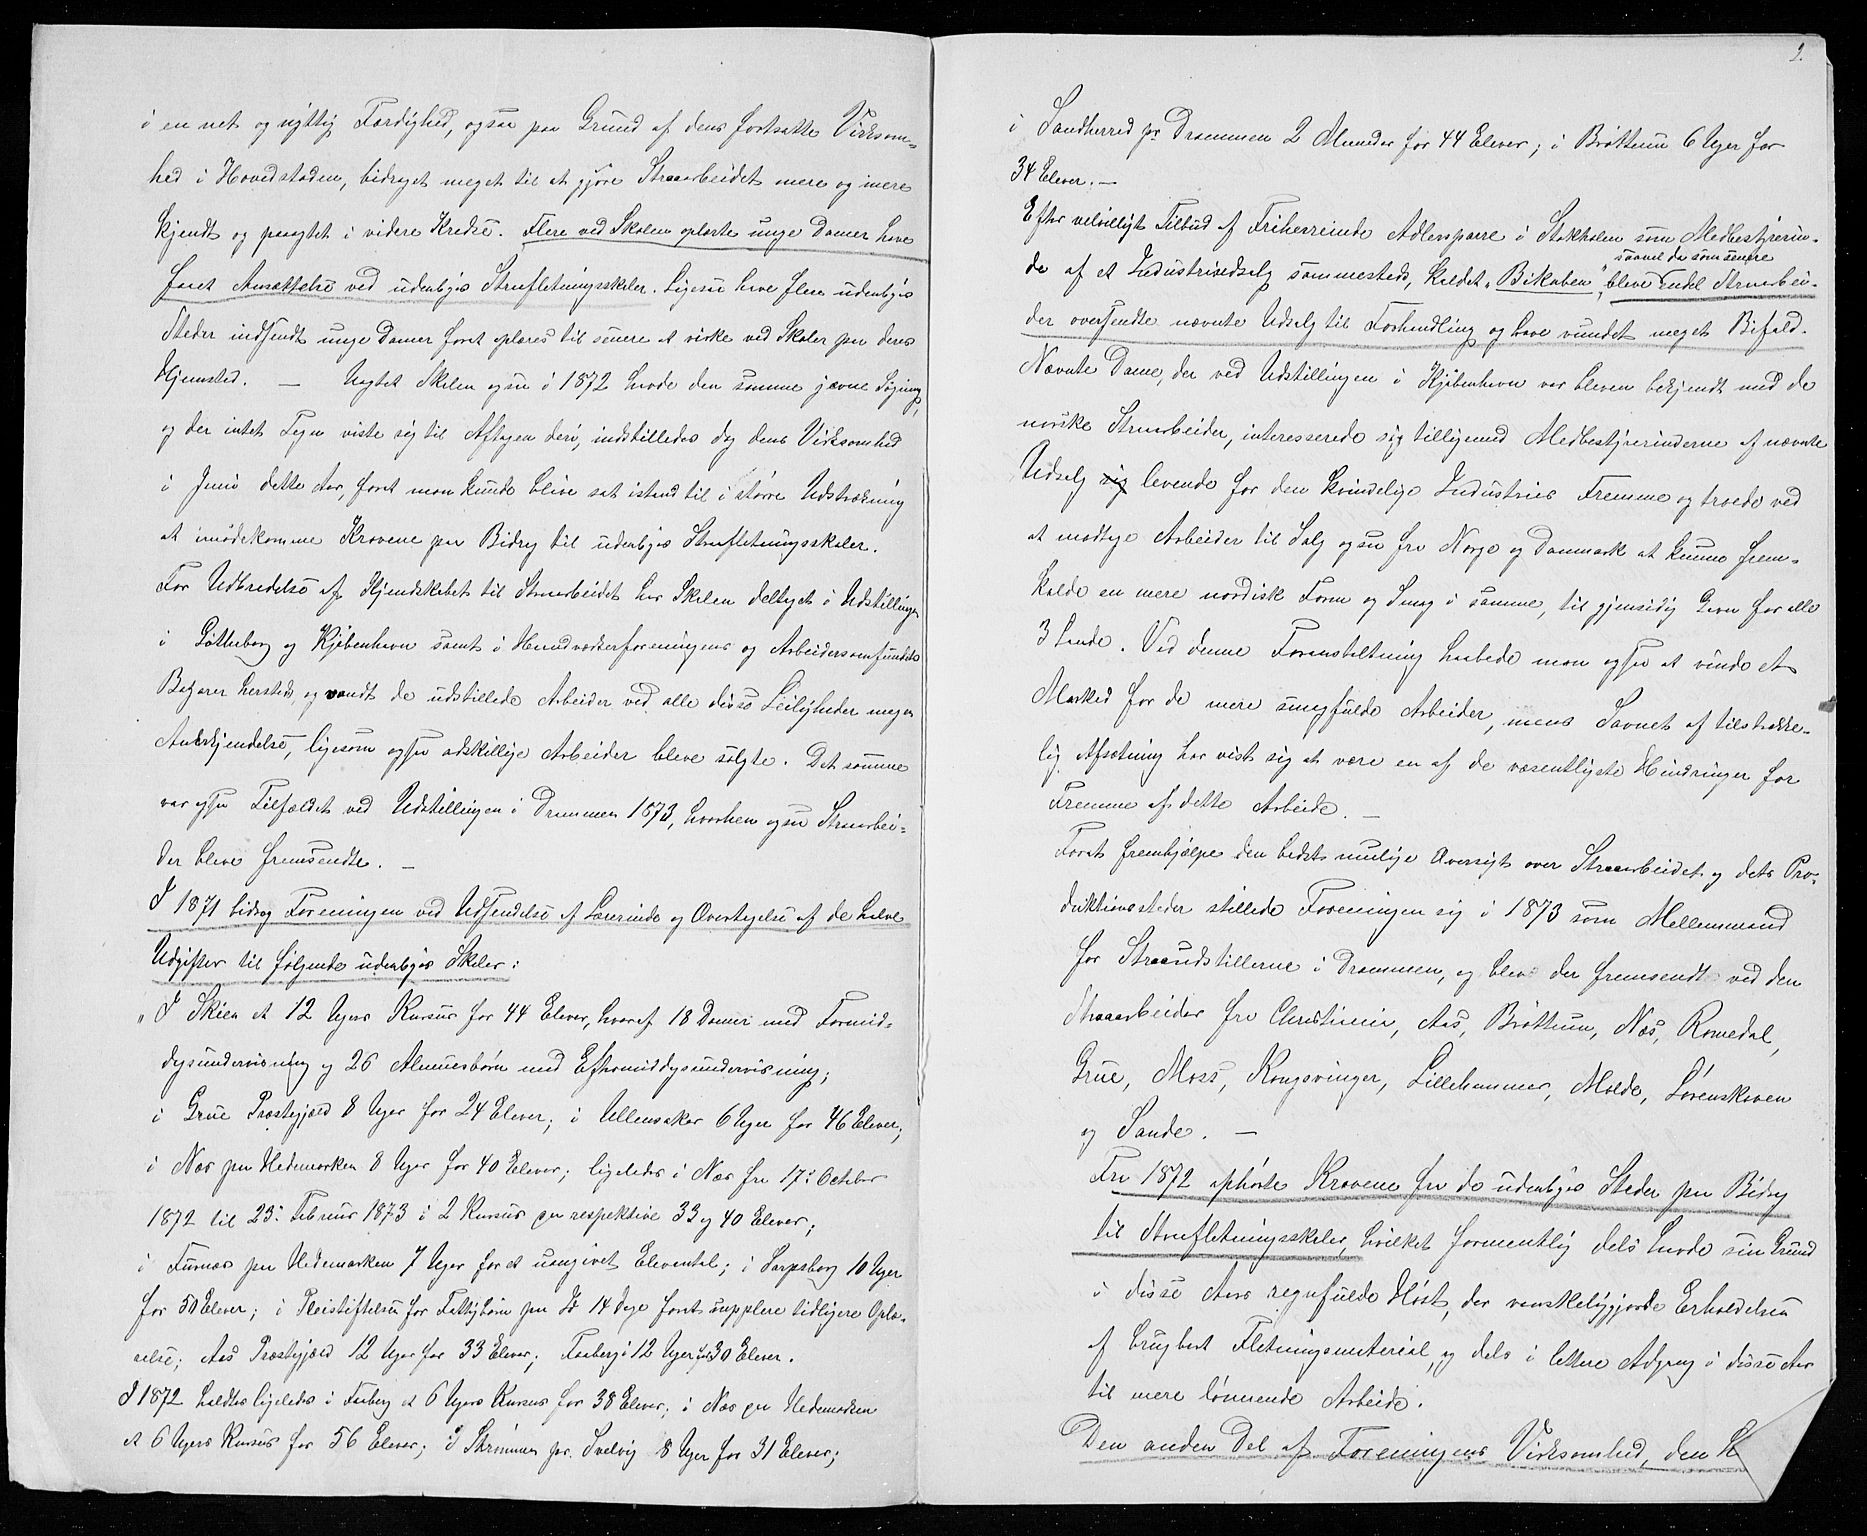 i en net og nyttig Færdighed, ogsaa paa Grund af dens fortsatte Virksom-
hed i Hovedstaden, bidraget meget til at gjøre Straaarbeidet mere og mere
kjendt og paaagtet i videre Kredse. Flere ved Skolen oplærte unge Damer have
faaet Ansættelse ved udenbyes Straafletningsskoler. Ligesaa have flere udenbyes
Steder indsendt unge Damer forat oplæres til senere at virke ved Skoler paa deres
Hjemsted. — Uagtet Skolen ogsaa i 1872 havde den samme jævne Søgning,
og der intet Tegn viste sig til Aftagen deri, indstilledes dog dens Virksomhed
i Juni dette Aar, forat man kunde blive sat istand til i større Udstrækning
at imødekomme Kravene paa Bidrag til udenbyes Straafletningsskoler.
For Udbredelse af Kjendskabet til Straaarbeidet har Skolen deltaget i Udstillinger
i Gøtheborg og Kjøbenhavn samt i Haandværkerforeningens og Arbeidersamfundets
Bazarer hersteds, og vandt de udstillede Arbeider ved alle disse Leiligheder megen
Anerkjendelse, ligesom ogsaa adskillige Arbeider bleve solgte. Det samme
var ogsaa Tilfældet ved Udstillingen i Drammen 1873, hvorhen ogsaa Straaarbei-
der bleve fremsendte. —
I 1871 bidrog Foreningen ved Udsendelse af Lærerinde og Overtagelse af de halve
Udgifter til følgende udenbyes Skoler:
"I Skien et 12 Ugers Kursus for 44 Elever, hvoraf 18 Damer med Formid-
dagsundervisning og 26 Almuesbørn med Eftermiddagsundervisning;
i Grue Præstegjæld 8 Uger for 24 Elever; i Ullensaker 6 Uger for 46 Elever;
i Næs paa Hedemarken 8 Uger for 40 Elever; ligeledes i Næs fra 17de October
1872 til 23de Februar 1873 i 2 Kursus paa respektive 33 og 40 Elever;
i Furnæs paa Hedemarken 7 Uger for et uangivet Elevental; i Sarpsborg 10 Uger
for 50 Elever; i Pleistiftelsen for Fattigbørn paa 14 Dage forat supplere tidligere Oplæ-
relse; Aas Præstegjæld 12 Uger for 33 Elever; Faaberg i 12 Uger for 30 Elever.
I 1872 holdtes ligeledes i Faaberg et 6 Ugers Kursus for 38 Elever; i Næs paa Hedemarken
et 6 Ugers Kursus for 56 Elever; i Strømmen pr. Svelvig 8 Uger for 31 Elever;
2.
i Sandherred pr Drammen 2 Maaneder for 44 Elever; i Brøttum 6 Uger for
34 Elever. —
Efter velvilligt Tilbud af Friherreinde Adlersparre i Stokholm som Medbestyrerin-
saavel da som senere
de af et Industriudsalg sammesteds, kaldet "Bikuben", bleve endel Straaarbei-
der oversendte nævnte Udsalg til Forhandling og have vundet meget Bifald.
Nævnte Dame, der ved Udstillingen i Kjøbenhavn var bleven bekjendt med de
norske Straaarbeider, interesserede sig tilligemed Medbestyrerinderne af nævnte
Udsalg sig levende for den kvindelige Industries Fremme og troede ved
at modtage Arbeider til Salg ogsaa fra Norge og Danmark at kunne frem-
kalde en mere nordisk Form og Smag i samme, til gjensidig Gavn for alle
3 Lande. Ved denne Foranstaltning haabede man ogsaa at vinde et
Marked for de mere smagfulde Arbeider, mens Savnet af tilstrække-
lig Afsætning har vist sig at være en af de væsentligste Hindringer for
Fremme af dette Arbeide. —
Forat fremhjælpe den bedst mulige Oversigt over Straaarbeidet og dets Pro-
duktionssteder stillede Foreningen sig i 1873 som Mellemmand
for Straaudstillerne i Drammen, og blev der fremsendt ved den
Straaarbeider fra Christiania, Aas, Brøttum, Næs, Romedal,
Grue, Moss, Kongsvinger, Lillehammer, Molde, Lørenskoven
og Sande. —
Fra 1872 ophørte Kravene fra de udenbyes Steder paa Bidrag
til Straafletningsskoler, hvilket formentlig dels havde sin Grund
i disse Aars regnfulde Høst, der vanskeliggjorde Erholdelsen
af brugbart Fletningsmaterial, og dels i lettere Adgang i disse Aar
til mere lønnende Arbeide.
Den anden Del af Foreningens Virksomhed, den